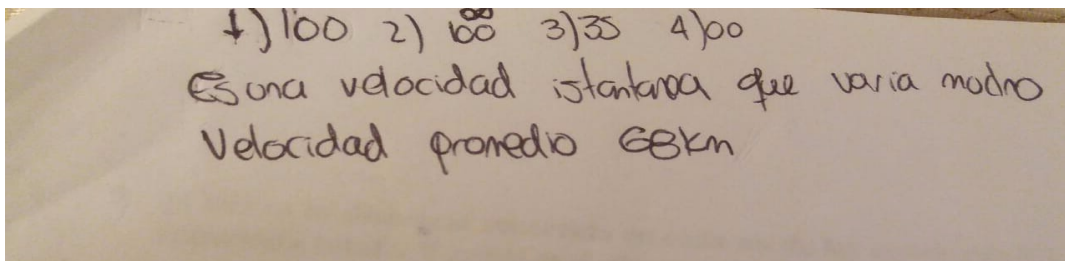 1) 100 2) 100 3) 35 4) 00
Es una velocidad istantanea que varia
Velocidad promedio 68km